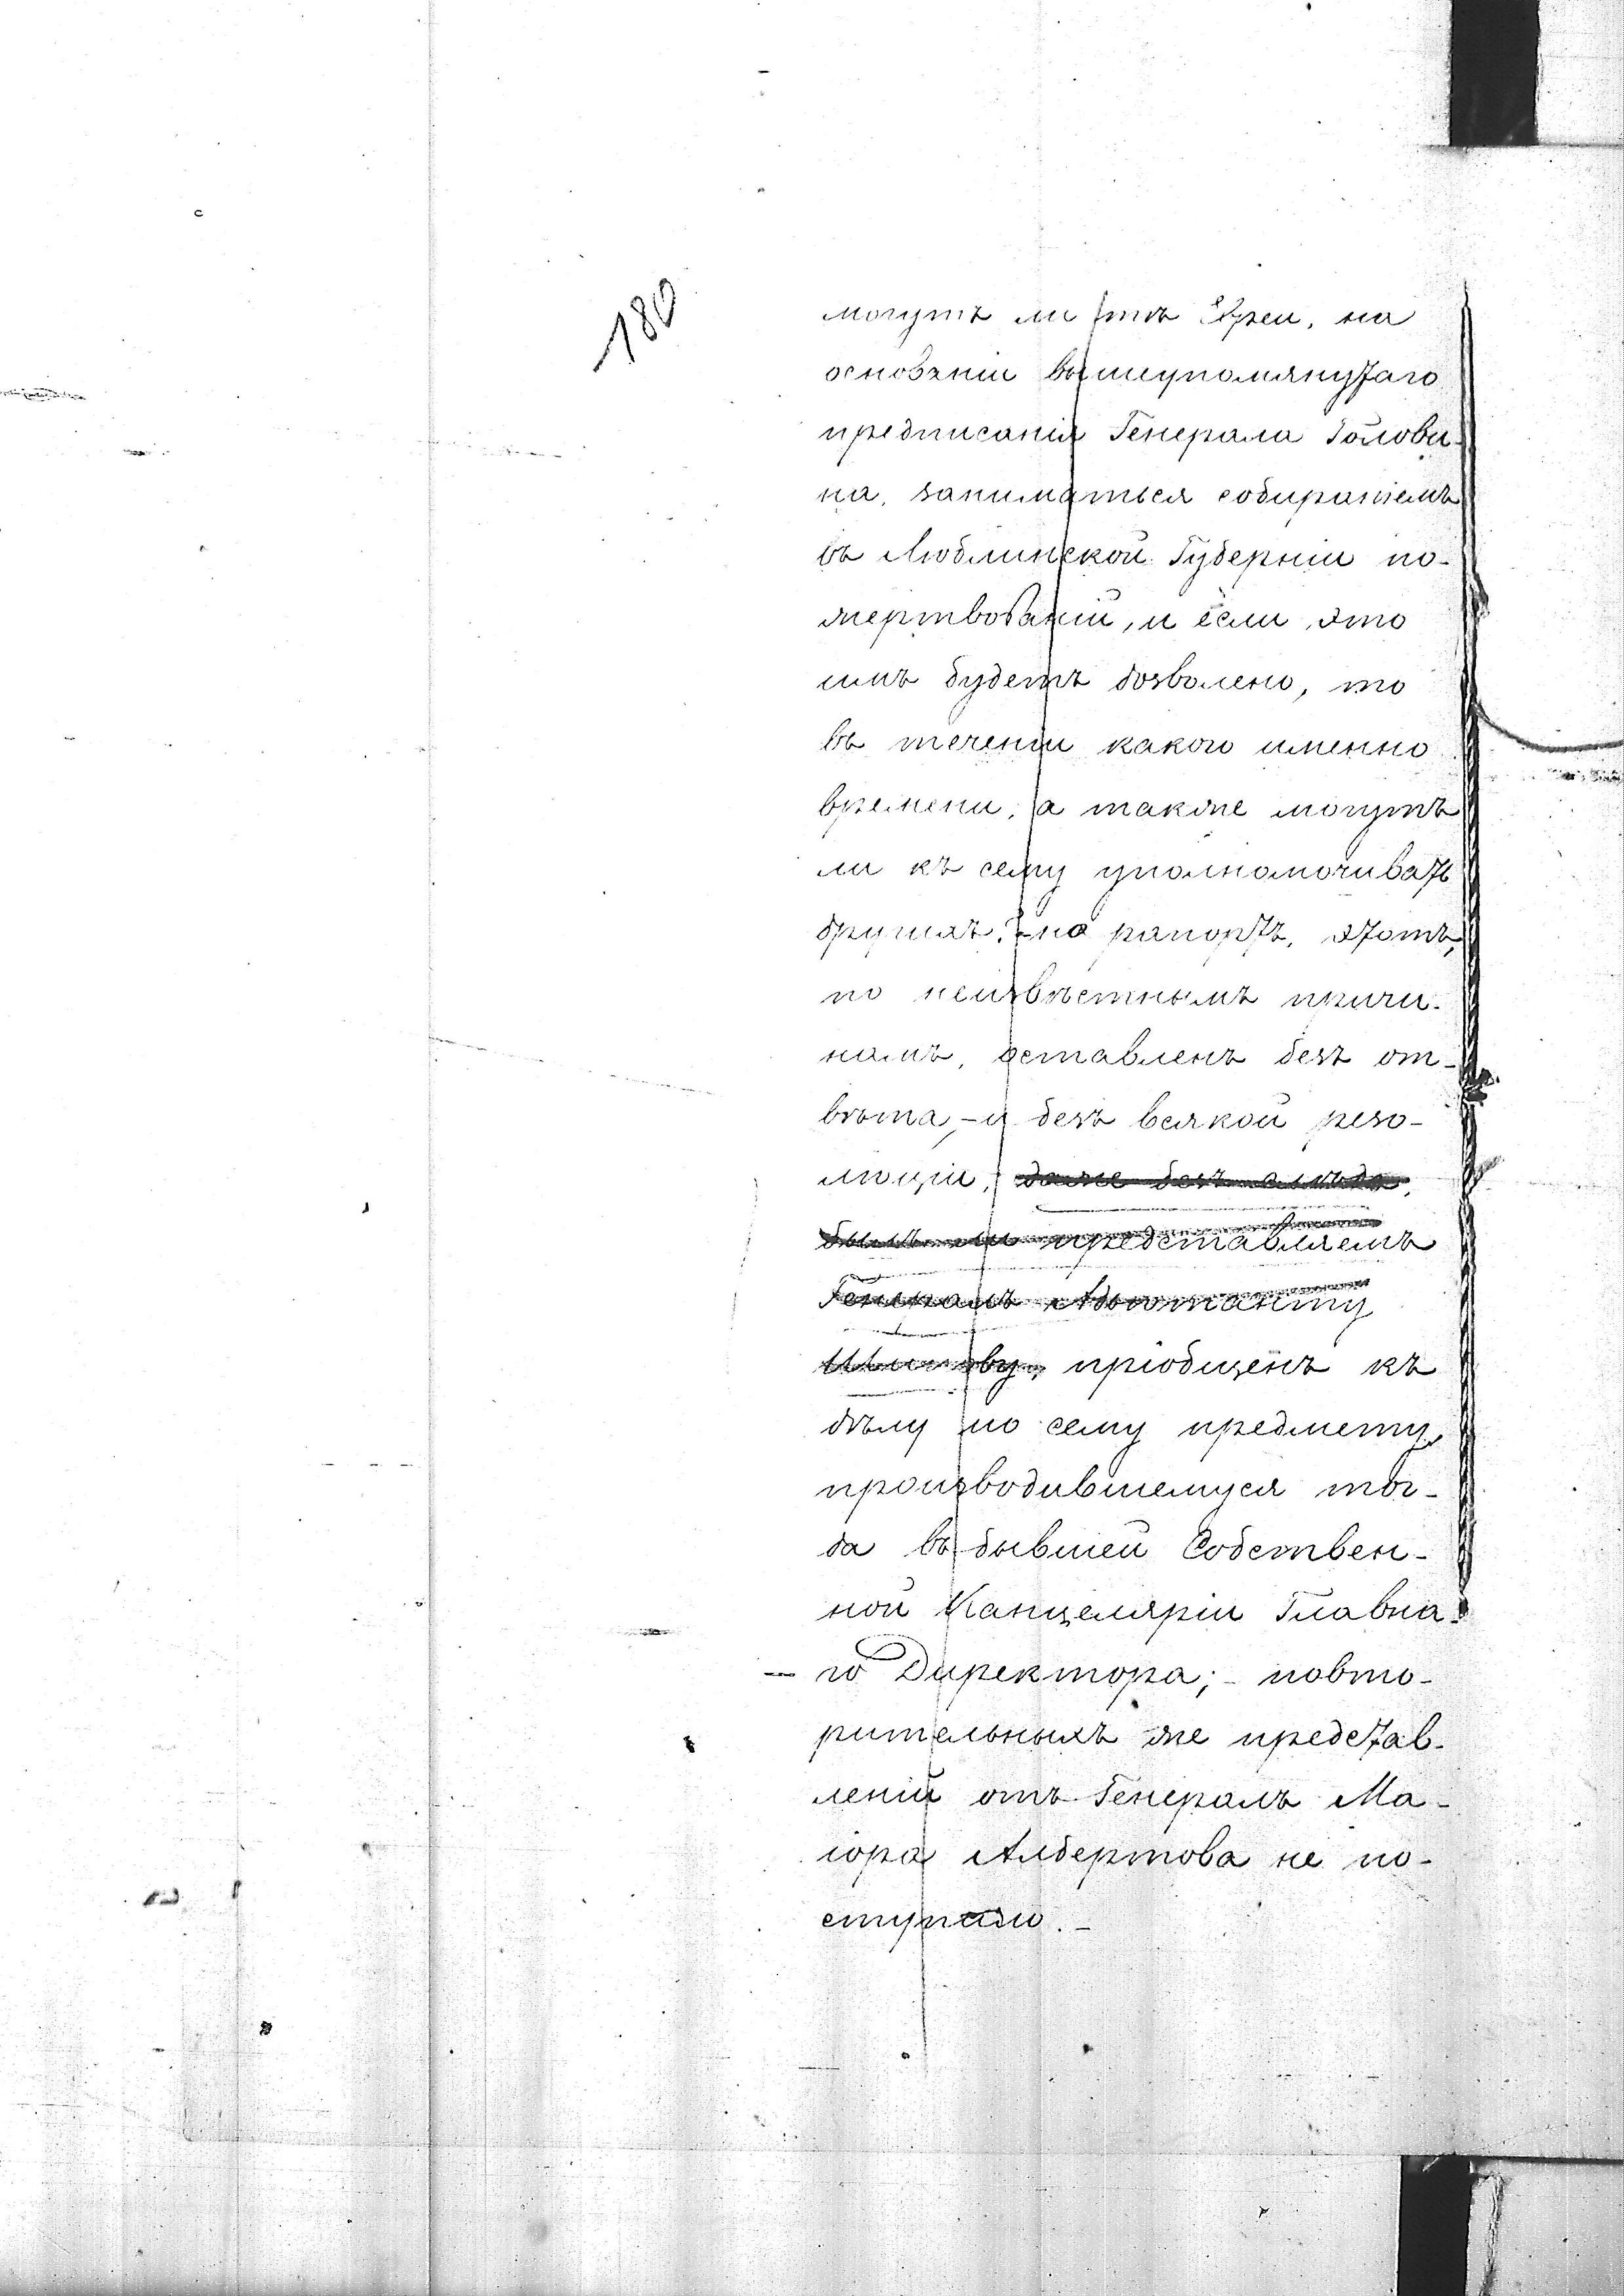 180
могутъ ли тѣ Евреи, на
основаніи вышеупомянутаго
предписанія Генерала Голови-
на, заниматься собираніемъ
въ Люблинской Губерніи по-
жертвованій, и если это
имъ будетъ дозволено, то
въ теченіи какого именно
времени, а также могутъ
ли къ сему уполномочивать
другихъ?-но рапортъ, этотъ,
по неизвѣстнымъ причи-
намъ, оставленъ безъ от-
вѣта,-и безъ всякой резо-
люціи, даже безъ слѣда,
былъ ли представляемъ
Генералъ Адъютанту
Шипову, пріобщенъ къ
дѣлу по сему предмету,
производившемуся тог-
да въ бывшей Собствен-
ной Канцеляріи Главна-
го Директора;- повто-
рительныхъ же представ-
леній отъ Генералъ Ма-
іора Албертова не по-
ступало.-